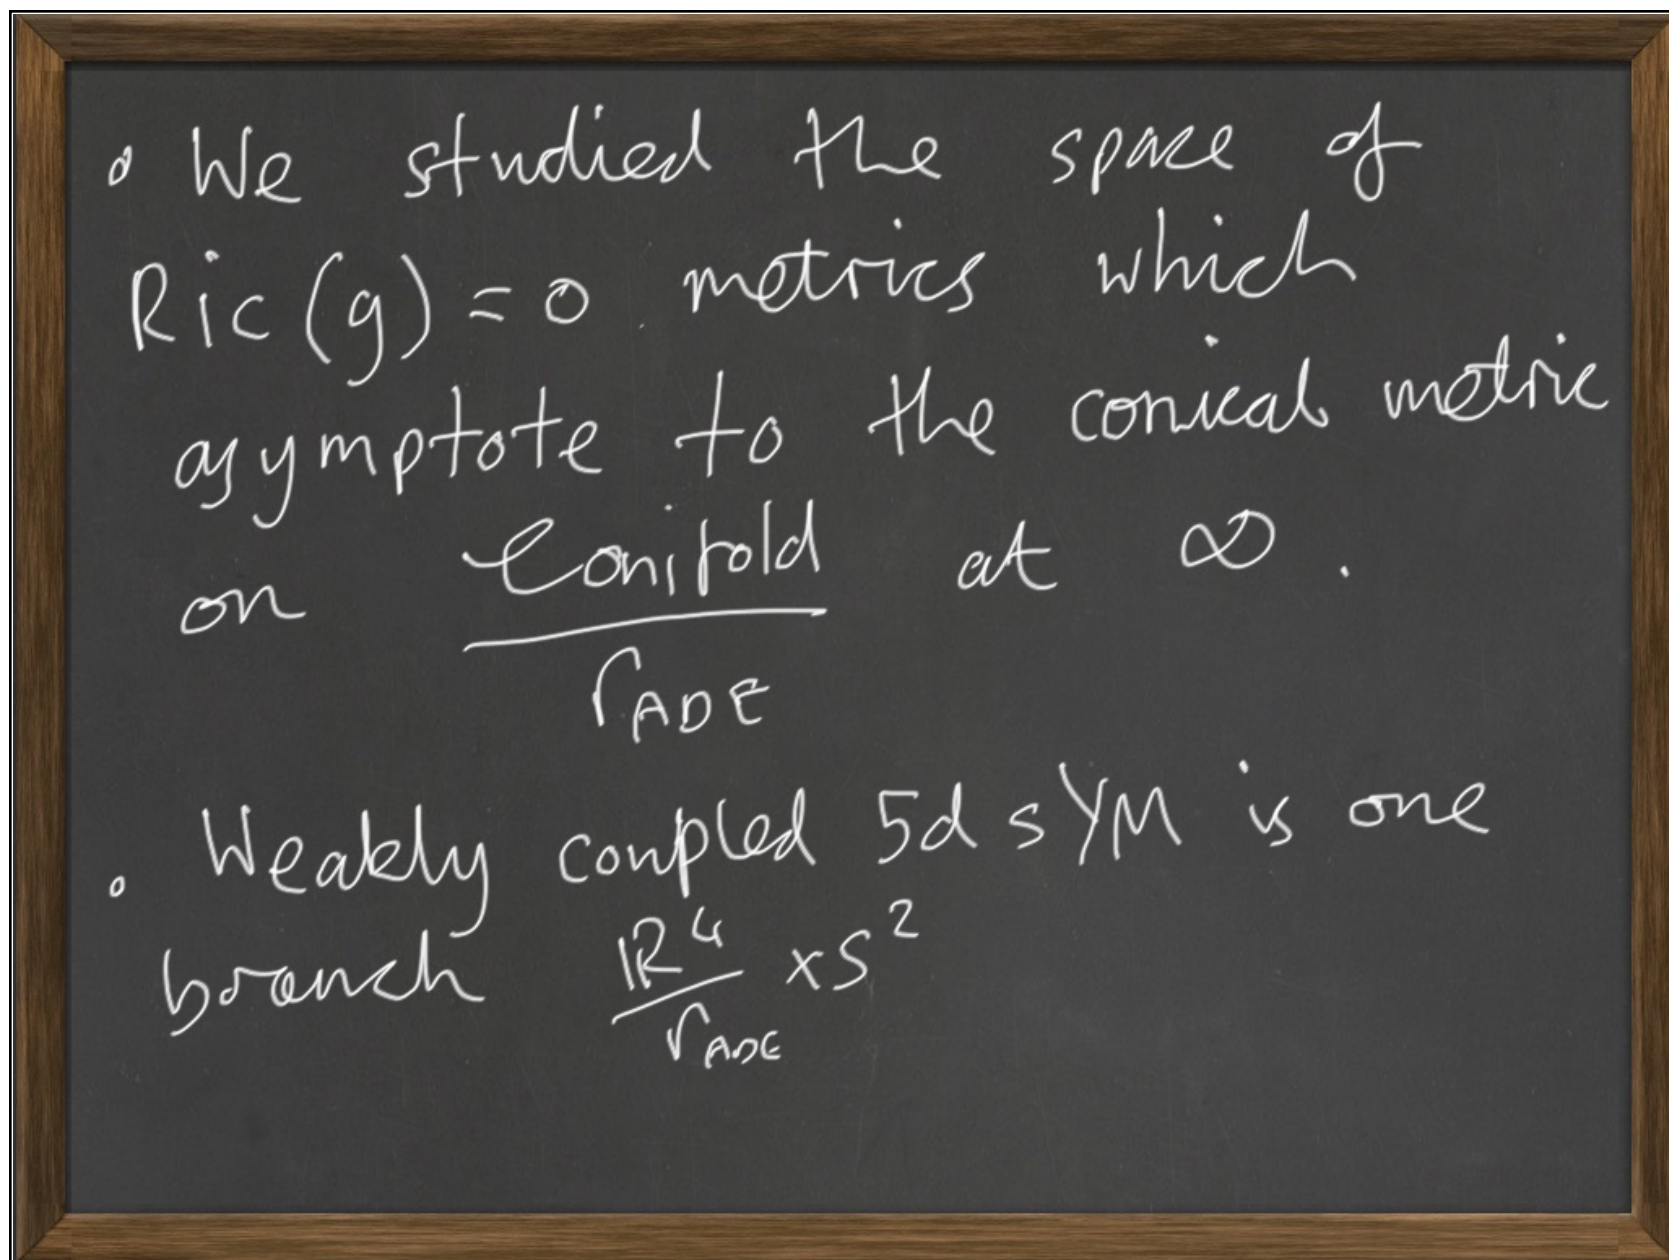 • We studied the space of
Ric(g) = 0 metrics which
asymptote to the conical metric
on Conifold / Γ_ADE at ∞.
• Weakly coupled 5d sYM is one
branch ℝ⁴ / Γ_ADE × S²